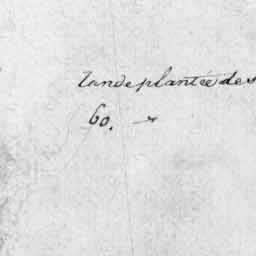 Lande plantée de
60.